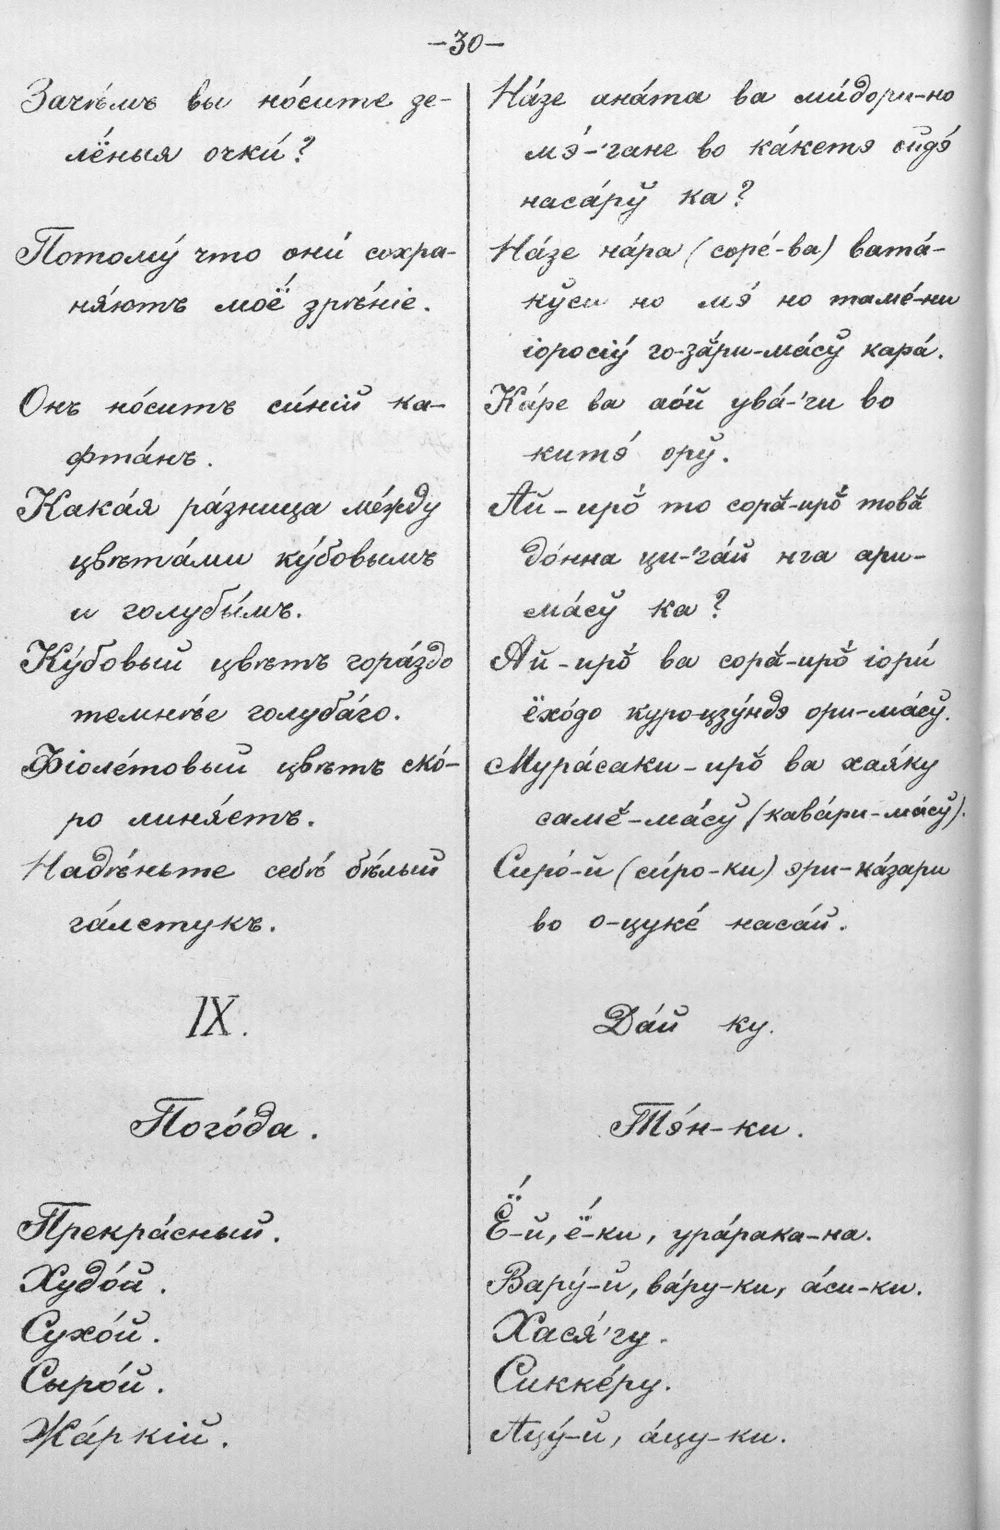 —30—
Зачѣ́мъ вы но́сите зе-
лёныя очки́?
Пото́му́ что они́ сохра-
ня́ютъ моё зрѣ́ніе.
Онъ но́ситъ си́ній ка-
фта́нъ.
Кака́я ра́зница ме́жду
цвѣта́ми ку́бовымъ
и голубы́мъ.
Ку́бовый цвѣтъ гора́здо
темнѣ́е голуба́го.
Фіоле́товый цвѣтъ ско́-
ро линя́етъ.
Надѣ́ньте себѣ́ бѣ́лый
га́лстукъ.
IX.
Пого́да.
Прекра́сный.
Худо́й.
Сухо́й.
Сыро́й.
Жа́ркій.
На́зе ана́та ва ми́дори-но
мэ́-'гане во ка́кетэ
наса́рў ка?
На́зе на́ра (соре́-ва) вата́-
кўси но мэ́ но таме́-ни
іоросіу́ го-зӑри-ма́сў кара́.
Ка́ре ва ао́й ува́-'ги во
китэ́ орў.
Ай-иро̆́ то сорӑ́-иро̆́ товӑ
до́нна ци-'га́й нга ари-
ма́сў ка?
Ай-иро̆́ ва сорӑ́-иро̆́ іори́
ёхо́до куро-цзу́ндэ ори-ма́сў.
Мура́саки-иро̆́ ва хая́ку
самӗ́-ма́сў (кава́ри-ма́сў).
Сиро́-й (си́ро-ки) эри-ка́зари
во о-цуке́ наса́й.
Да́й ку.
Тэ́н-ки.
Ё́-й, ё́-ки, ура́рака-на.
Вару́-й, ва́ру-ки, а́си-ки.
Хася́'гу.
Сикке́ру.
Ацу́-й, а́цу-ки.